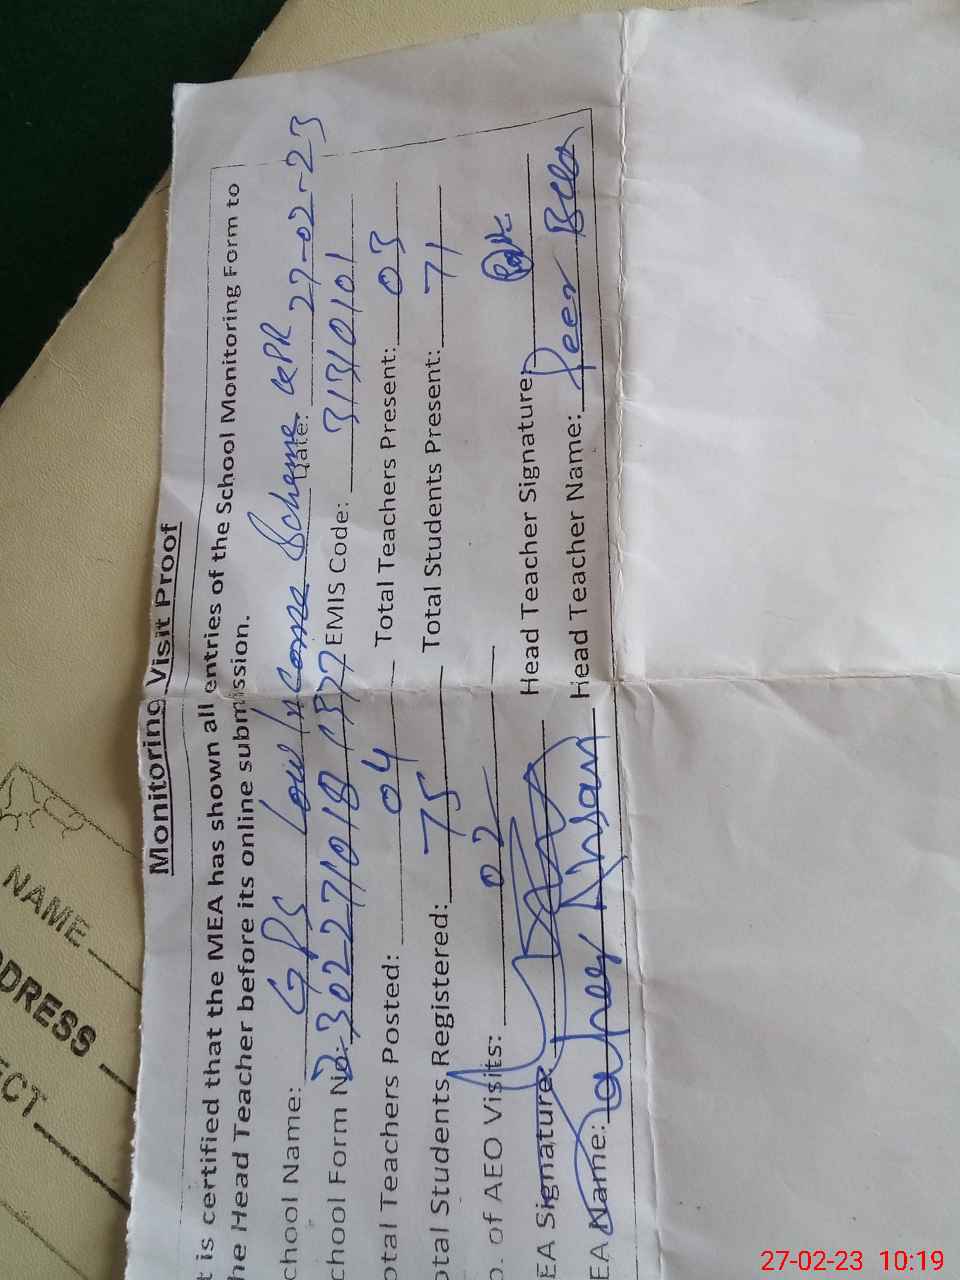 Monitoring Visit Proof
t is certified that the MEA has shown all entries of the School Monitoring Form to
he Head Teacher before its online submission.
chool Name: GPS Low Income Scheme Date: 27-02-23
chool Form No: EMIS Code: 31310101
otal Teachers Posted: 04 Total Teachers Present: 03
otal Students Registered: 75 Total Students Present: 71
o. of AEO Visits: 02
EA Signature: Head Teacher Signature:
EA Name: Ahsan Head Teacher Name: Peer
NAME
DDRESS
ECT
27-02-23 10:19